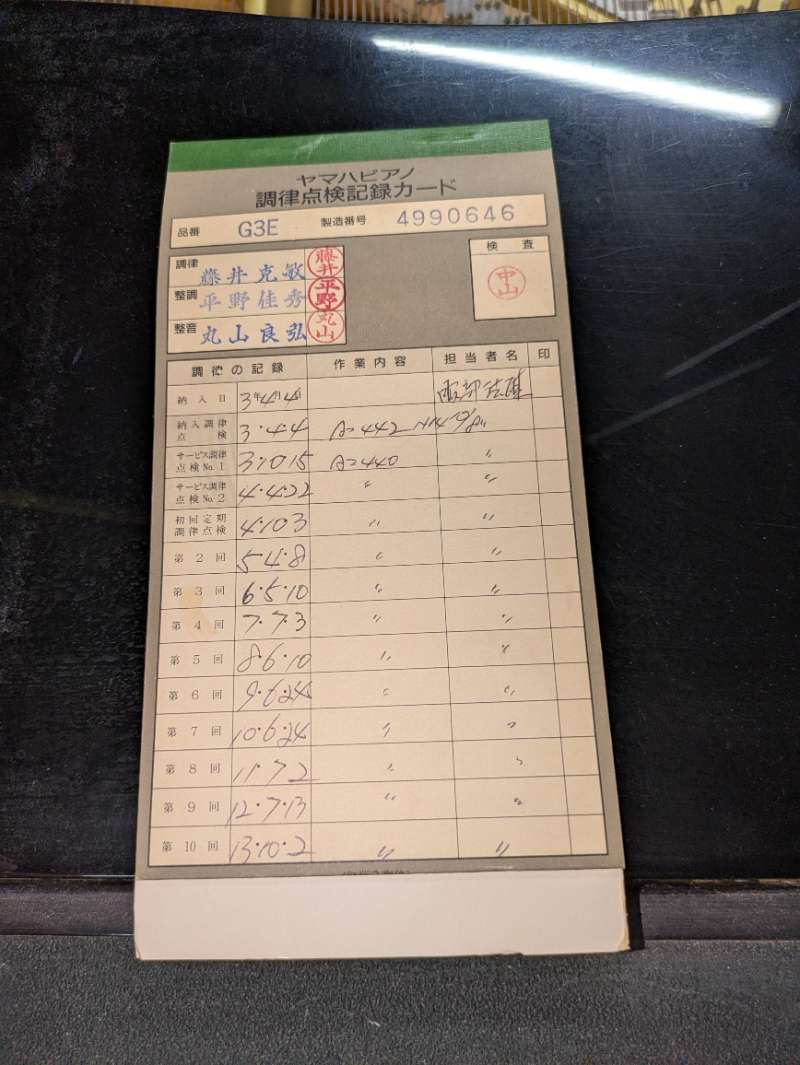 ヤマハピアノ
調律点検記録カード
品番 G3E 製造番号 4990646
調律 藤井克敏 藤井 検査
整調 平野佳秀 平野 中山
整音 丸山良弘 丸山
調律の記録 作業内容 担当者名 印
納入日 3年4月4日
納入調律点検 3・4・4 A=442
サービス調律点検No.1 3・10・15 A=440 〃
サービス調律点検No.2 4・4・22 〃 〃
初回定期調律点検 4・10・3 〃 〃
第2回 5・4・8 〃 〃
第3回 6・5・10 〃 〃
第4回 7・7・3 〃 〃
第5回 8・6・10 〃 〃
第6回 9・6・24 〃 〃
第7回 10・6・24 〃 〃
第8回 11・7・2 〃 〃
第9回 12・7・13 〃 〃
第10回 13・10・2 〃 〃